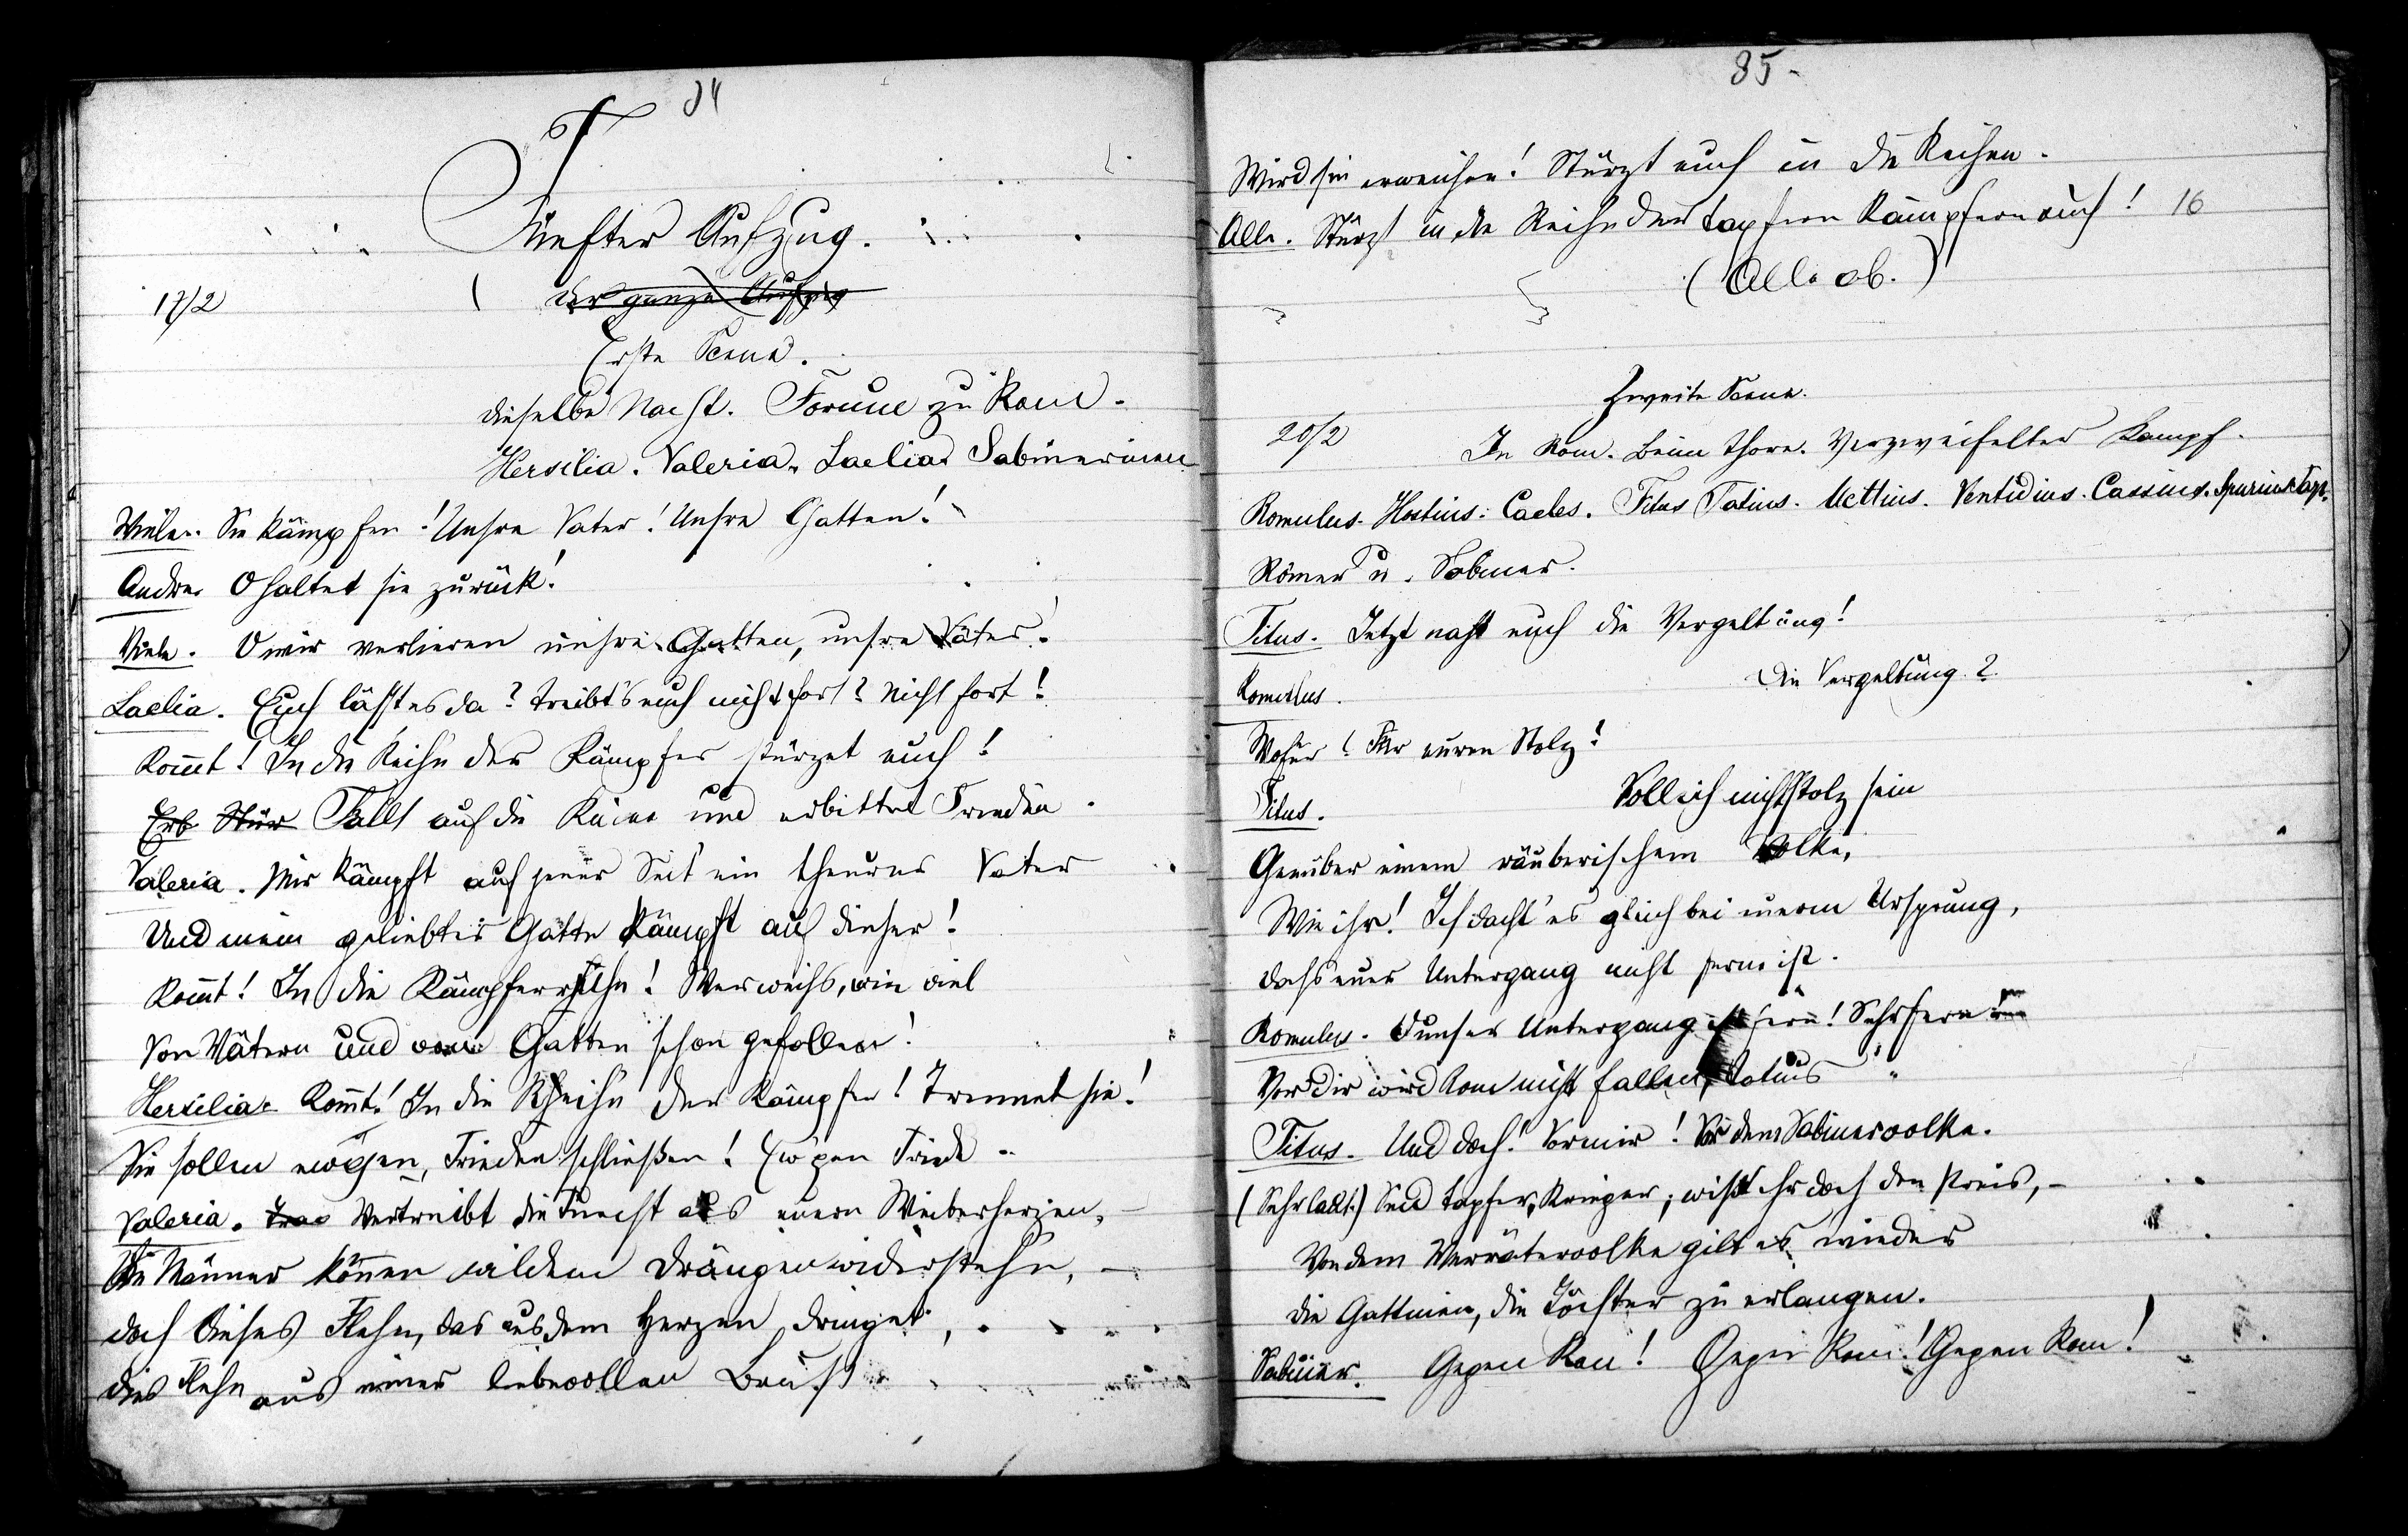 84
Fünfter Aufzug.
17/2
der ganze Aufzug
Erste Scene.
Dieselbe Nacht. Forum zu Rom.
Hersilia. Valeria. Laelia. Sabinerinnen
Viele. Sie kämpfen! Unsre Vater! Unsre Gatten!
Andre. O haltet sie zurück!
Viele. O wir verlieren unsre Gatten, unsre Väter!
Laelia. Euch lässt es da? Treibt's euch nicht fort? Nicht fort!
Kom̄t! In die Reih'n der Kämpfer stürzet euch!
Erb Stür Fallt auf die Kniee und erbittet Frieden.
Valeria. Mir kämpft auf jener Seit' ein theurer Vater
Und mein geliebter Gatte kämpft auf dieser!
Kom̄t! In die Kämpferreihn! Wer weiß, wie viel
Von Vätern und von Gatten schon gefallen!
Hersilia. Kom̄t! In die Reih'n der Kämpfer! Trennet sie!
Sie sollen ew'gen Frieden schließen! Ew'gen Friede
Valeria. Vertreibt die Furcht aus euern Weiberherzen,
Die Männer können wildem Drängen widerstehn,
Doch dieses Flehn, das aus dem Herzen dringet,
Dies Flehn aus einer liebevollen Brust
85.
Wird sie erweichen! Stürzt euch in die Reihen.
Alle. Stürzt in die Reihn der tapfern Kämpfer euch! 16
(Alle ab.)
Zweite Scene.
20/2
In Rom. Beim Thore. Verzweifelter Kampf.
Romulus. Hostius. Caeles. Titus Tatius. Mettius. Ventidius. Cassius. Spurius Tarp.
Römer u. Sabiner.
Titus. Jetzt naht euch die Vergeltung!
Romulus. Die Vergeltung?
Wofür? Für euren Stolz!
Titus. Soll ich nicht stolz sein
Genüber einem räuberischem Volke,
Wie ihr! Ich dacht' es gleich bei euerm Ursprung,
Dass euer Untergang nicht ferne ist.
Romulus. O unser Untergang ist fern! Sehr fern
Vor dir wird Rom nicht fallen, Tatius
Titus. Und doch! Vor mir! Vor dem Sabinervolke.
(Sehr laut.) Seid tapfer, Krieger; wisst ihr doch den Preis,
Von dem Verrätervolke gilt es wieder
Die Gattinnen, die Töchter zu erlangen.
Sabiner. Gegen Rom! Gegen Rom! Gegen Rom!